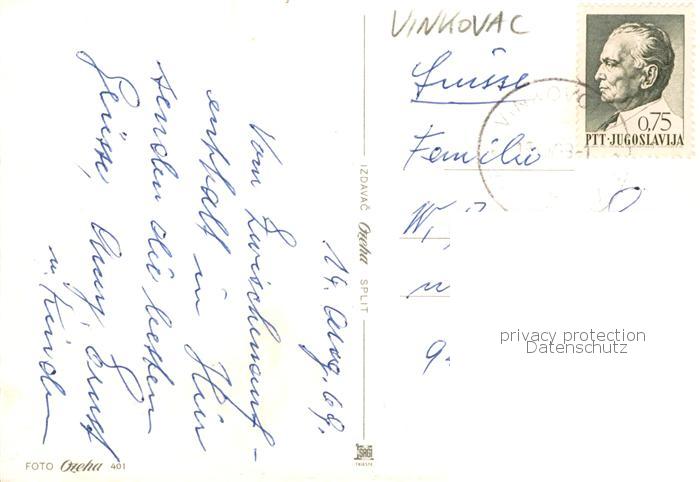 VINKOVAC
14. Aug. 69.
Vom Zwischenauf-
enthalt in Hier
senden die besten
Grüsse, Ernst
u. Kinder
Suisse
Familie
W.
9.
0,75
PTT·JUGOSLAVIJA
IZDAVAČ Ozeha SPLIT
FOTO Ozeha 401
TRIESTE
privacy protection
Datenschutz